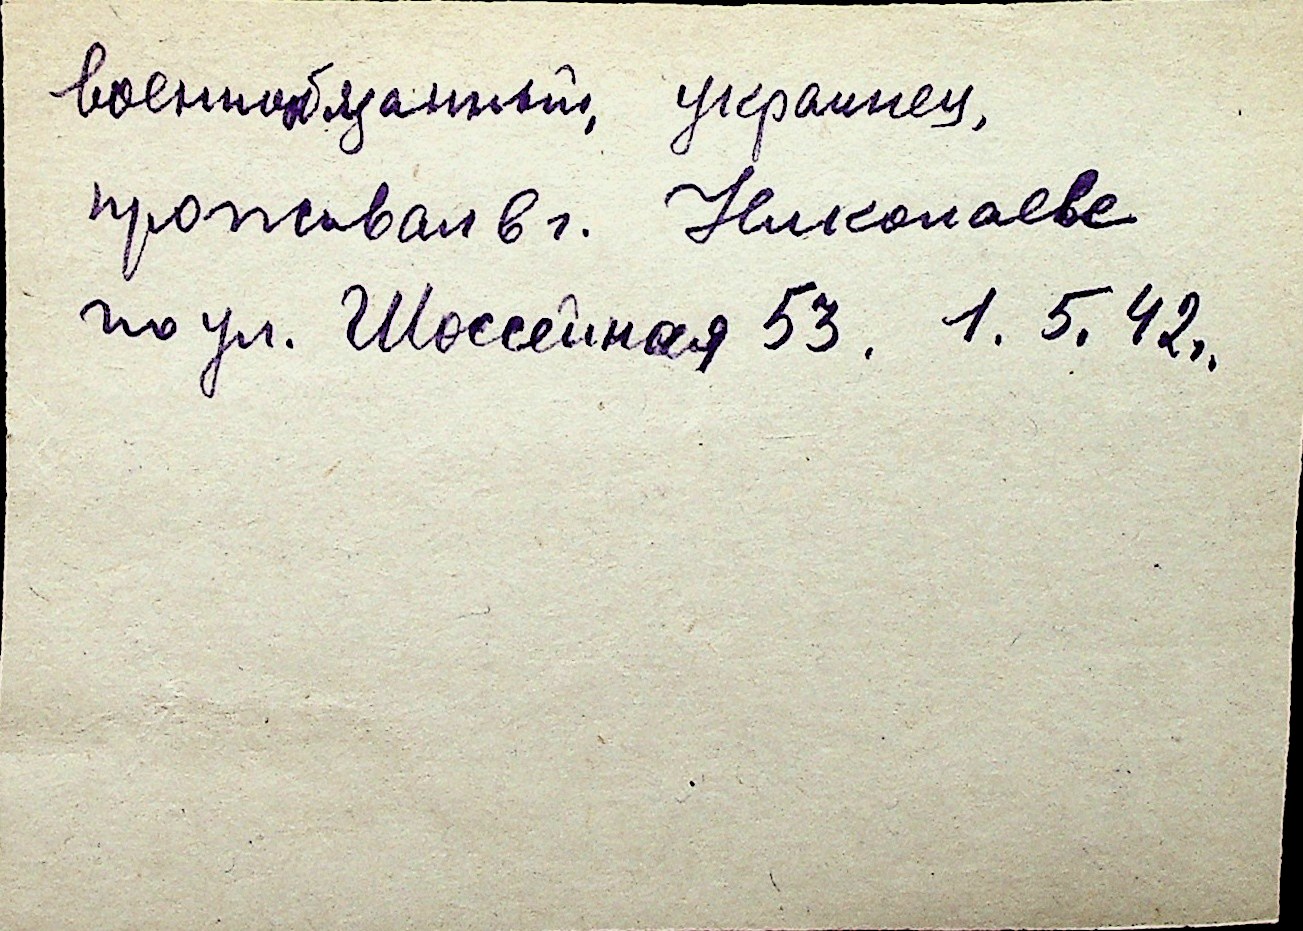 военнообязанный, украинец,
проживал в г. Николаеве
по ул. Шоссейная 53. 1.5.42г.